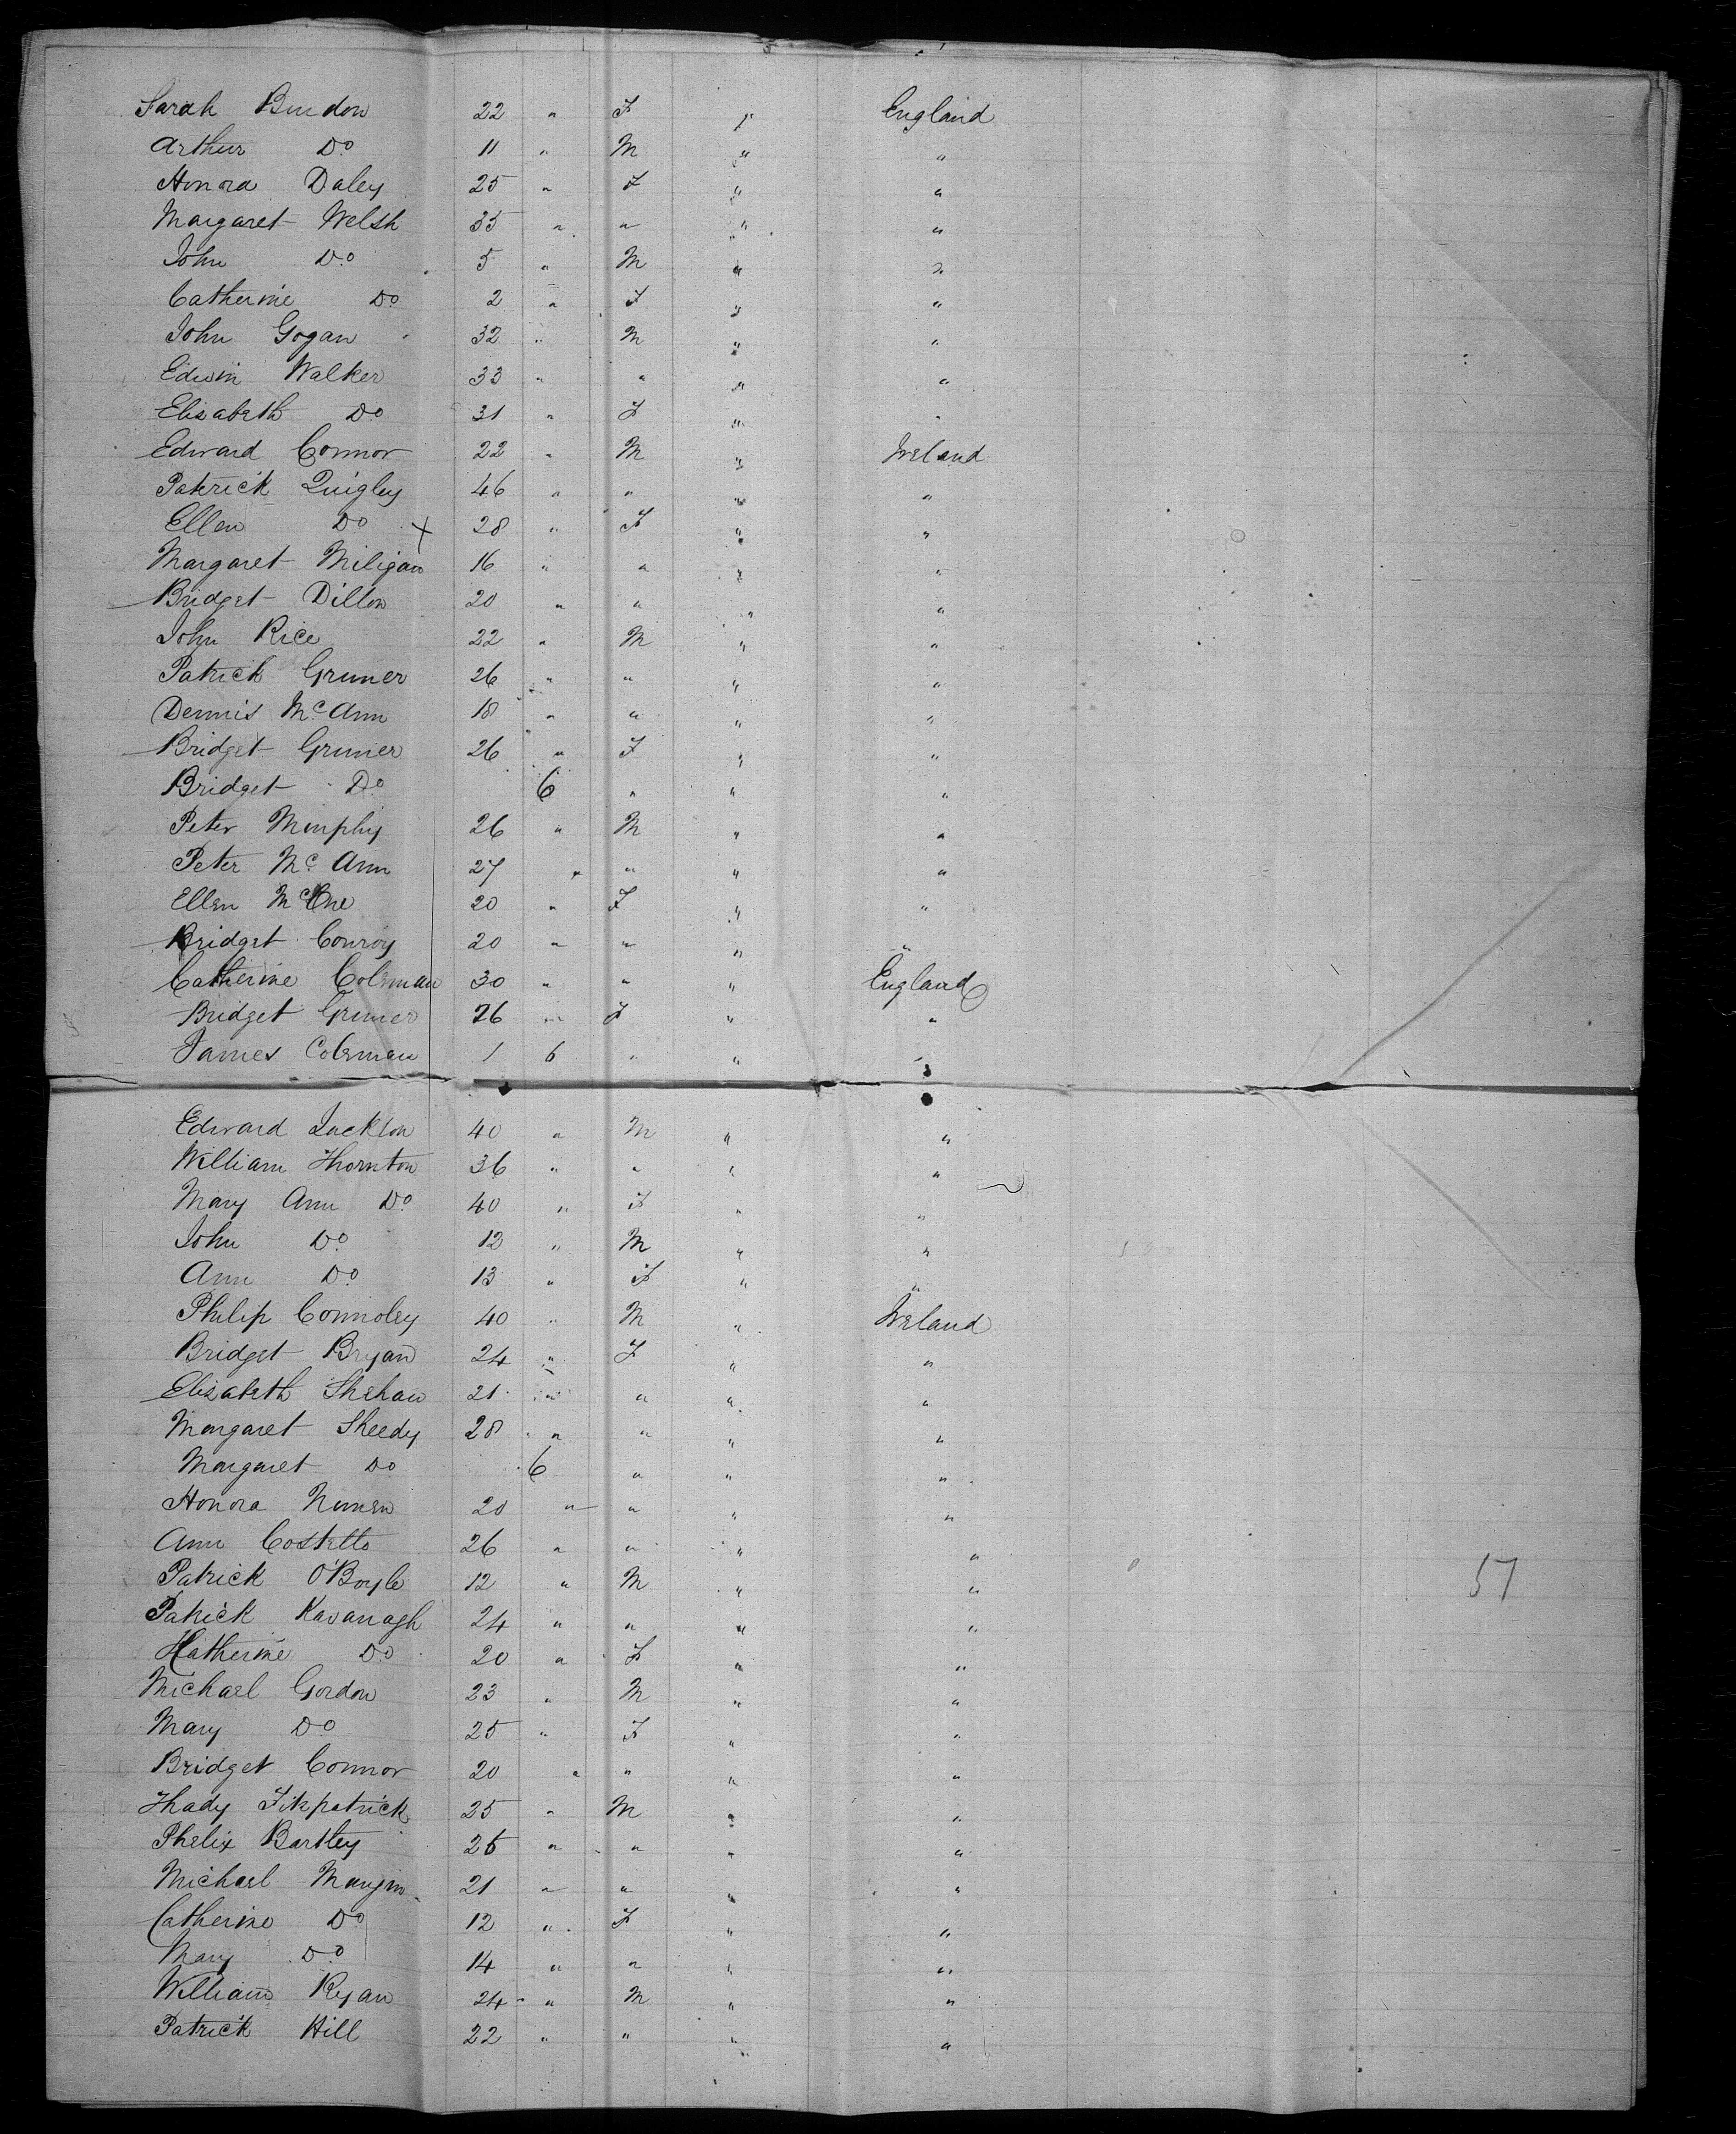 Sarah Burdon 22 " F " England
Arthur Do 11 " M " "
Honora Daley 25 " F " "
Margaret Welsh 35 " " " "
John Do 5 " M " "
Catherine Do 2 " F " "
John Gogan 32 " M " "
Edwin Walker 33 " " " "
Elisabeth Do 31 " F " "
Edward Connor 22 " M " Ireland
Patrick Quigley 46 " " " "
Ellen Do x 28 " F " "
Margaret Miligan 16 " " " "
Bridget Dillon 20 " " " "
John Rice 22 " M " "
Patrick Gruner 26 " " " "
Dennis McAnn 18 " " " "
Bridget Gruner 26 " F " "
Bridget Do 6 " " "
Peter Murphy 26 " M " "
Peter McAnn 27 " " " "
Ellen 20 " F " "
Bridget Conroy 20 " " " "
Catherine Coleman 30 " " " England
Bridget Gruner 26 " F " "
James Coleman 1 6 " " "
Edward 40 " M " "
William Thornton 36 " " " "
Mary Ann Do 40 " F " "
John Do 12 " M " "
Ann Do 13 " F " "
Philip Connoley 40 " M " Ireland
Bridget Bryan 24 " F " "
Elisabeth Shehan 21 " " " "
Margaret Sheedy 28 " " " "
Margaret Do 6 " " "
Honora 20 " " " "
Ann Costello 26 " " " "
Patrick O'Boyle 12 " M " "
Patrick Kavanagh 24 " " " "
Katherine Do 20 " F " "
Michael Gordon 23 " M " "
Mary Do 25 " F " "
Bridget Connor 20 " " " "
Thady Fitzpatrick 25 " M " "
Phelix Bartley 25 " " " "
Michael 21 " " " "
Catherine Do 12 " F " "
Mary Do 14 " " " "
William Ryan 24 " M " "
Patrick Hill 22 " " " "
57